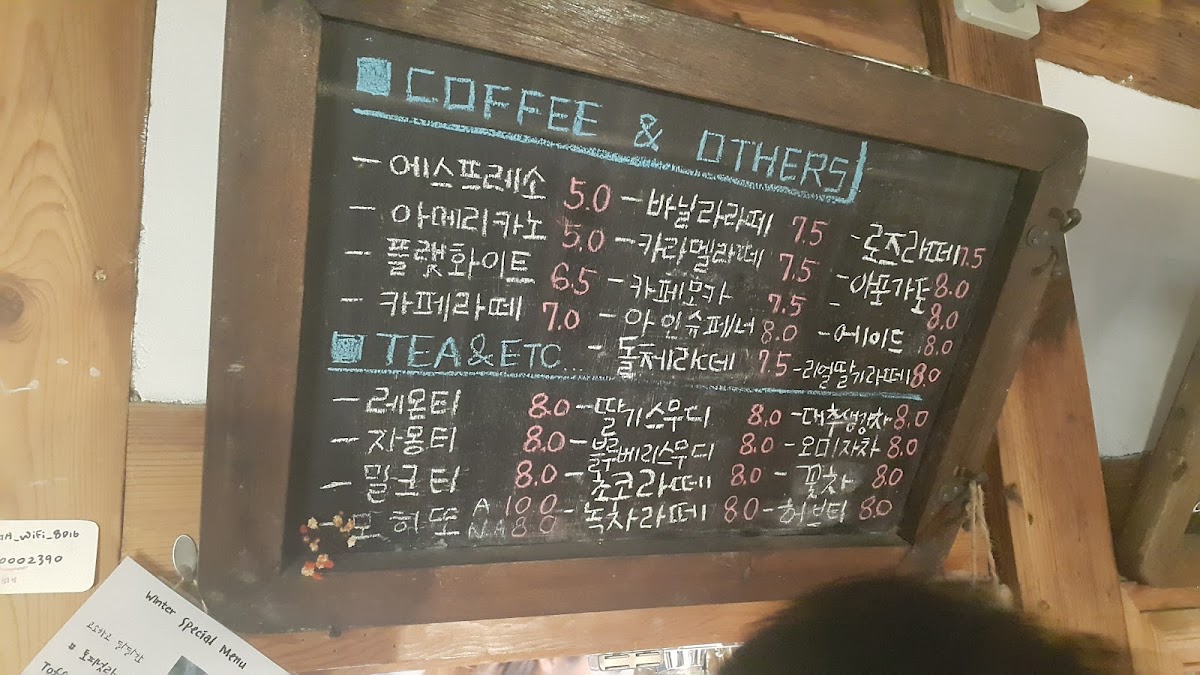 COFFEE & OTHERS
- 에스프레소 5.0
- 아메리카노 5.0
- 플랫화이트 6.5
- 카페라떼 7.0
- 바닐라라떼 7.5
- 카라멜라떼 7.5
- 카페모카 7.5
- 아인슈페너 8.0
- 돌체라떼 7.5
- 로즈라떼 7.5
- 아포가토 8.0
- 8.0
- 에이드 8.0
- 리얼딸기라떼 8.0
TEA & ETC...
- 레몬티 8.0
- 자몽티 8.0
- 밀크티 8.0
- 모히또 A 10.0
N.A 8.0
- 딸기스무디 8.0
- 블루베리스무디 8.0
- 초코라떼 8.0
- 녹차라떼 8.0
- 대추생강차 8.0
- 오미자차 8.0
- 꽃차 8.0
- 허브티 8.0
A_WiFi_8016
0002390
Winter Special Menu